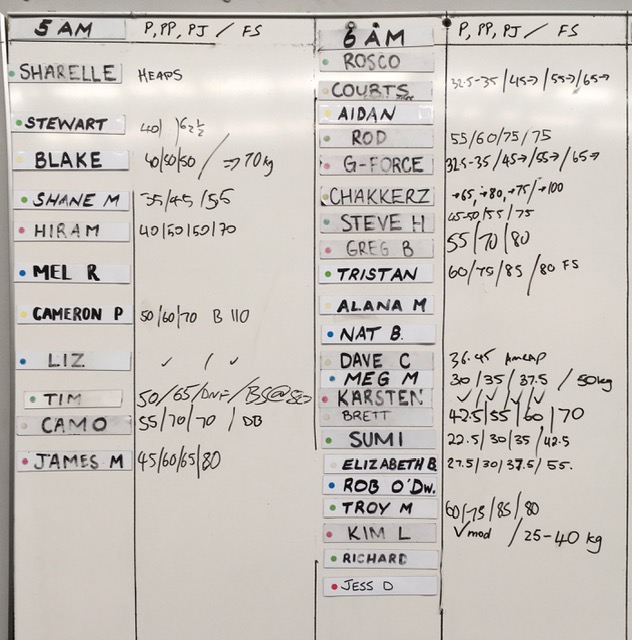 5 AM P, PP, PJ / FS
SHARELLE HEAPS
STEWART 40/ /62½
BLAKE 40/50/50 / => 70kg
SHANE M 35/45/55
HIRAM 40/50/50/70
MEL R
CAMERON P 50/60/70 B 110
LIZ ✓ / ✓
TIM 50/65/DNF/BS@
CAMO 55/70/70 / DB
JAMES M 45/60/65/80
6 AM P, PP, PJ / FS
ROSCO
COURTS 32.5-35/45→/55→/65→
AIDAN
ROD 55/60/75/75
G-FORCE 32.5-35/45→/55→/65→
CHAKKERZ →65, →80, →75/→100
STEVE H 45-50/55/75
GREG B 55/70/80
TRISTAN 60/75/85/80 FS
ALANA M
NAT B.
DAVE C 36.45 AMRAP
MEG M 30/35/37.5/50kg
KARSTEN ✓/✓/✓/✓
BRETT 42.5/55/60/70
SUMI 22.5/30/35/42.5
ELIZABETH B 27.5/30/37.5/55.
ROB O'DW.
TROY M 60/75/85/80
KIM L ✓mod / 25-40 kg
RICHARD
JESS D